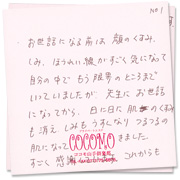 No 1
お世話になる前は 顔のくすみ、
しみ、ほうれい線がすごく気になって
自分の中で もう限界のところまで
いっていましたが 先生にお世話
になってから、日に日に 肌のくすみ
も消え しみもうすくなり つるつるの
肌になって きました。
COCOMO
すごく感謝 これからも